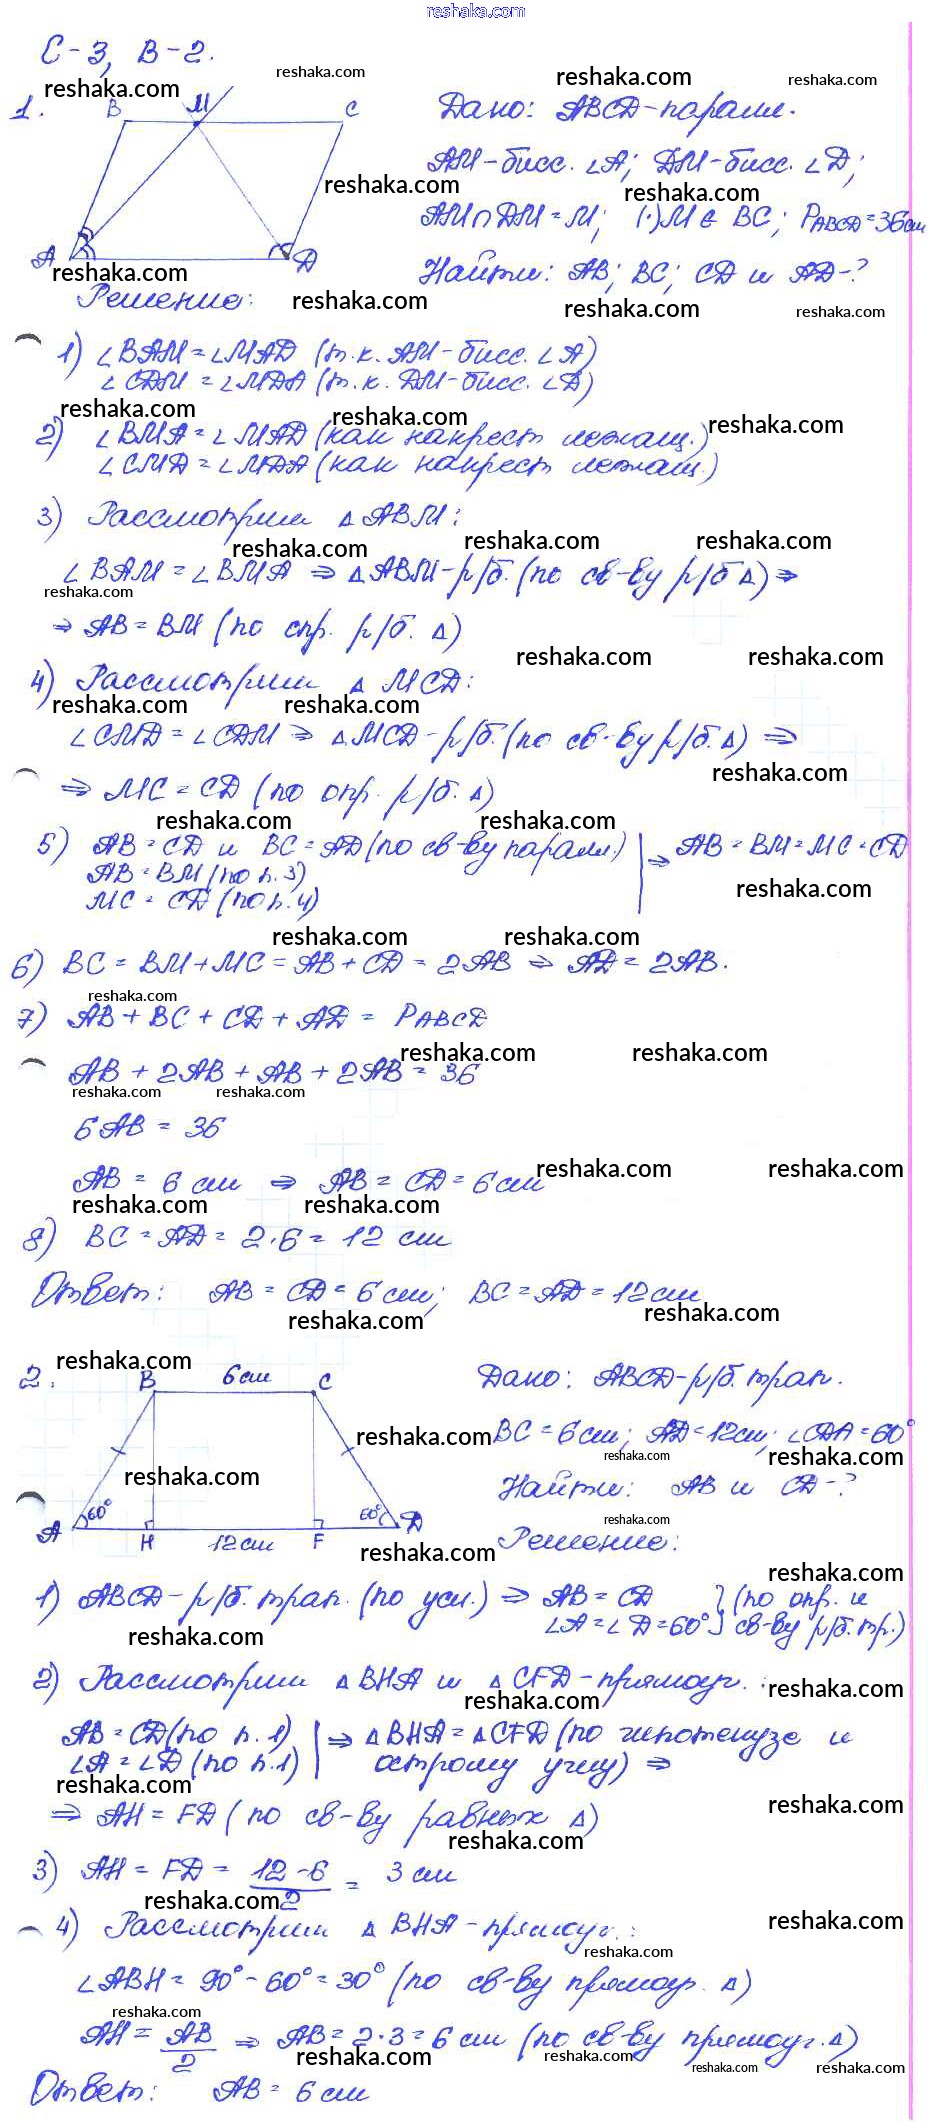 reshaka.com
С-3, В-2.
1.
B M C
A D
Дано: ABCD-паралл.
AM-бисс. ∠A; DM-бисс. ∠D;
AM∩DM=M; (·)M∈BC; P_ABCD=36см
Найти: AB; BC; CD и AD-?
Решение:
1) ∠BAM=∠MAD (т.к. AM-бисс. ∠A)
∠CDM=∠MDA (т.к. DM-бисс. ∠D)
2) ∠BMA=∠MAD (как накрест лежащ.)
∠CMD=∠MDA (как накрест лежащ.)
3) Рассмотрим △ABM:
∠BAM=∠BMA ⇒ △ABM-р/б. (по св-ву р/б △) ⇒
⇒ AB=BM (по опр. р/б. △)
4) Рассмотрим △ MCD:
∠CMD=∠CDM ⇒ △MCD-р/б. (по св-ву р/б. △) ⇒
⇒ MC=CD (по опр. р/б. △)
5) AB=CD и BC=AD (по св-ву паралл.) | ⇒ AB=BM=MC=CD
AB=BM (по п.3)
MC=CD (по п.4)
6) BC=BM+MC=AB+CD=2AB ⇒ AD=2AB.
7) AB+BC+CD+AD=P_ABCD
AB+2AB+AB+2AB=36
6AB=36
AB=6 см ⇒ AB=CD=6 см
8) BC=AD=2·6=12 см
Ответ: AB=CD=6 см; BC=AD=12 см
2.
B 6 см C
A 60° H 12 см F 60° D
Дано: ABCD-р/б. трап.
BC=6 см; AD=12 см; ∠CDA=60°
Найти: AB и CD-?
Решение:
1) ABCD-р/б. трап. (по усл.) ⇒ AB=CD } (по опр. и
∠A=∠D=60° } св-ву р/б. тр.)
2) Рассмотрим △BHA и △CFD-прямоуг.:
AB=CD (по п.1) | ⇒ △BHA=△CFD (по гипотенузе и
∠A=∠D (по п.1) | острому углу) ⇒
⇒ AH=FD (по св-ву равных △)
3) AH=FD=(12-6)/2=3 см
4) Рассмотрим △BHA-прямоуг.:
∠ABH=90°-60°=30° (по св-ву прямоуг. △)
AH=AB/2 ⇒ AB=2·3=6 см (по св-ву прямоуг. △)
Ответ: AB=6 см